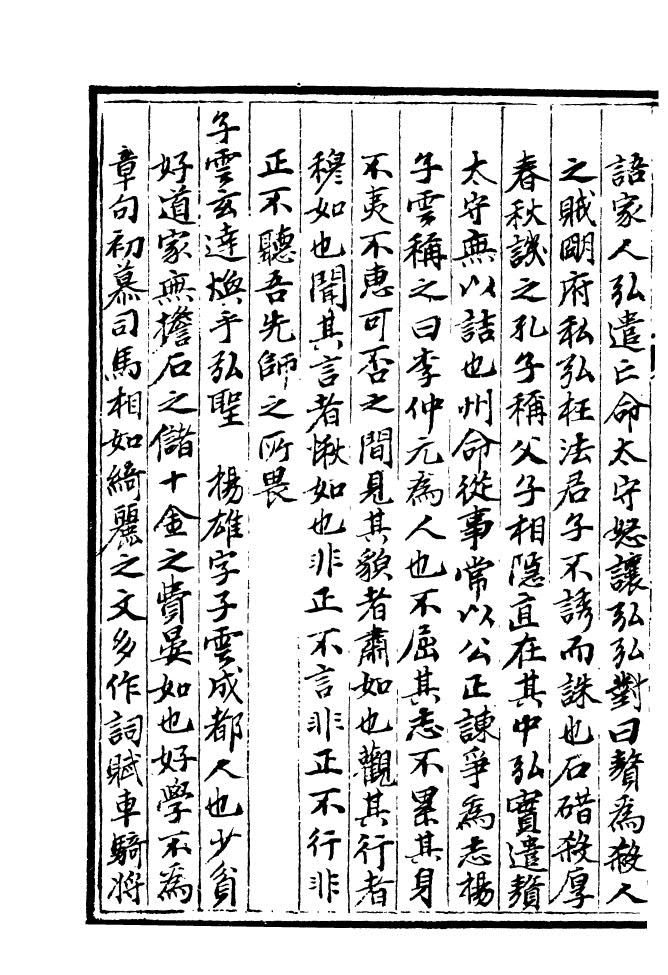 語家人弘遣亡命太守怒讓弘弘對曰贅為殺人
之賊明府私弘枉法君子不誘而誅也石碏殺厚
春秋譏之孔子稱父子相隱直在其中弘實遣贅
太守無以詰也州命從事常以公正諫爭為志楊
子雲稱之曰李仲元為人也不屈其志不累其身
不夷不惠可否之間見其貌者肅如也觀其行者
穆如也聞其言者愀如也非正不言非正不行非
正不聽吾先師之所畏
子雲玄達煥乎弘聖　楊雄字子雲成都人也少貧
好道家無擔石之儲十金之費晏如也好學不為
章句初慕司馬相如綺麗之文多作詞賦車騎將